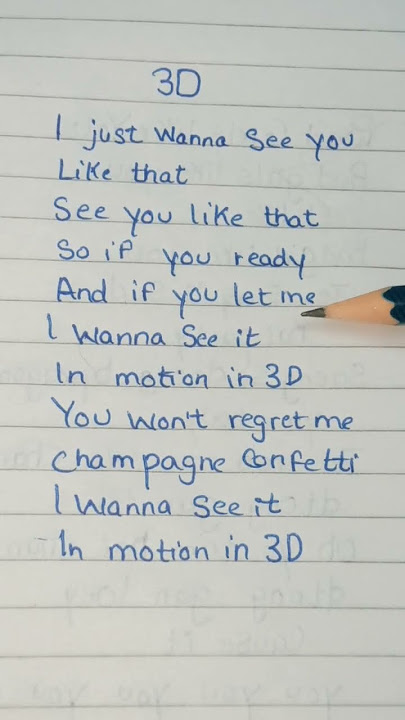 3D
I just wanna see you
Like that
See you like that
So if you ready
And if you let me
I wanna see it
In motion in 3D
You won't regret me
Champagne Confetti
I wanna see it
In motion in 3D